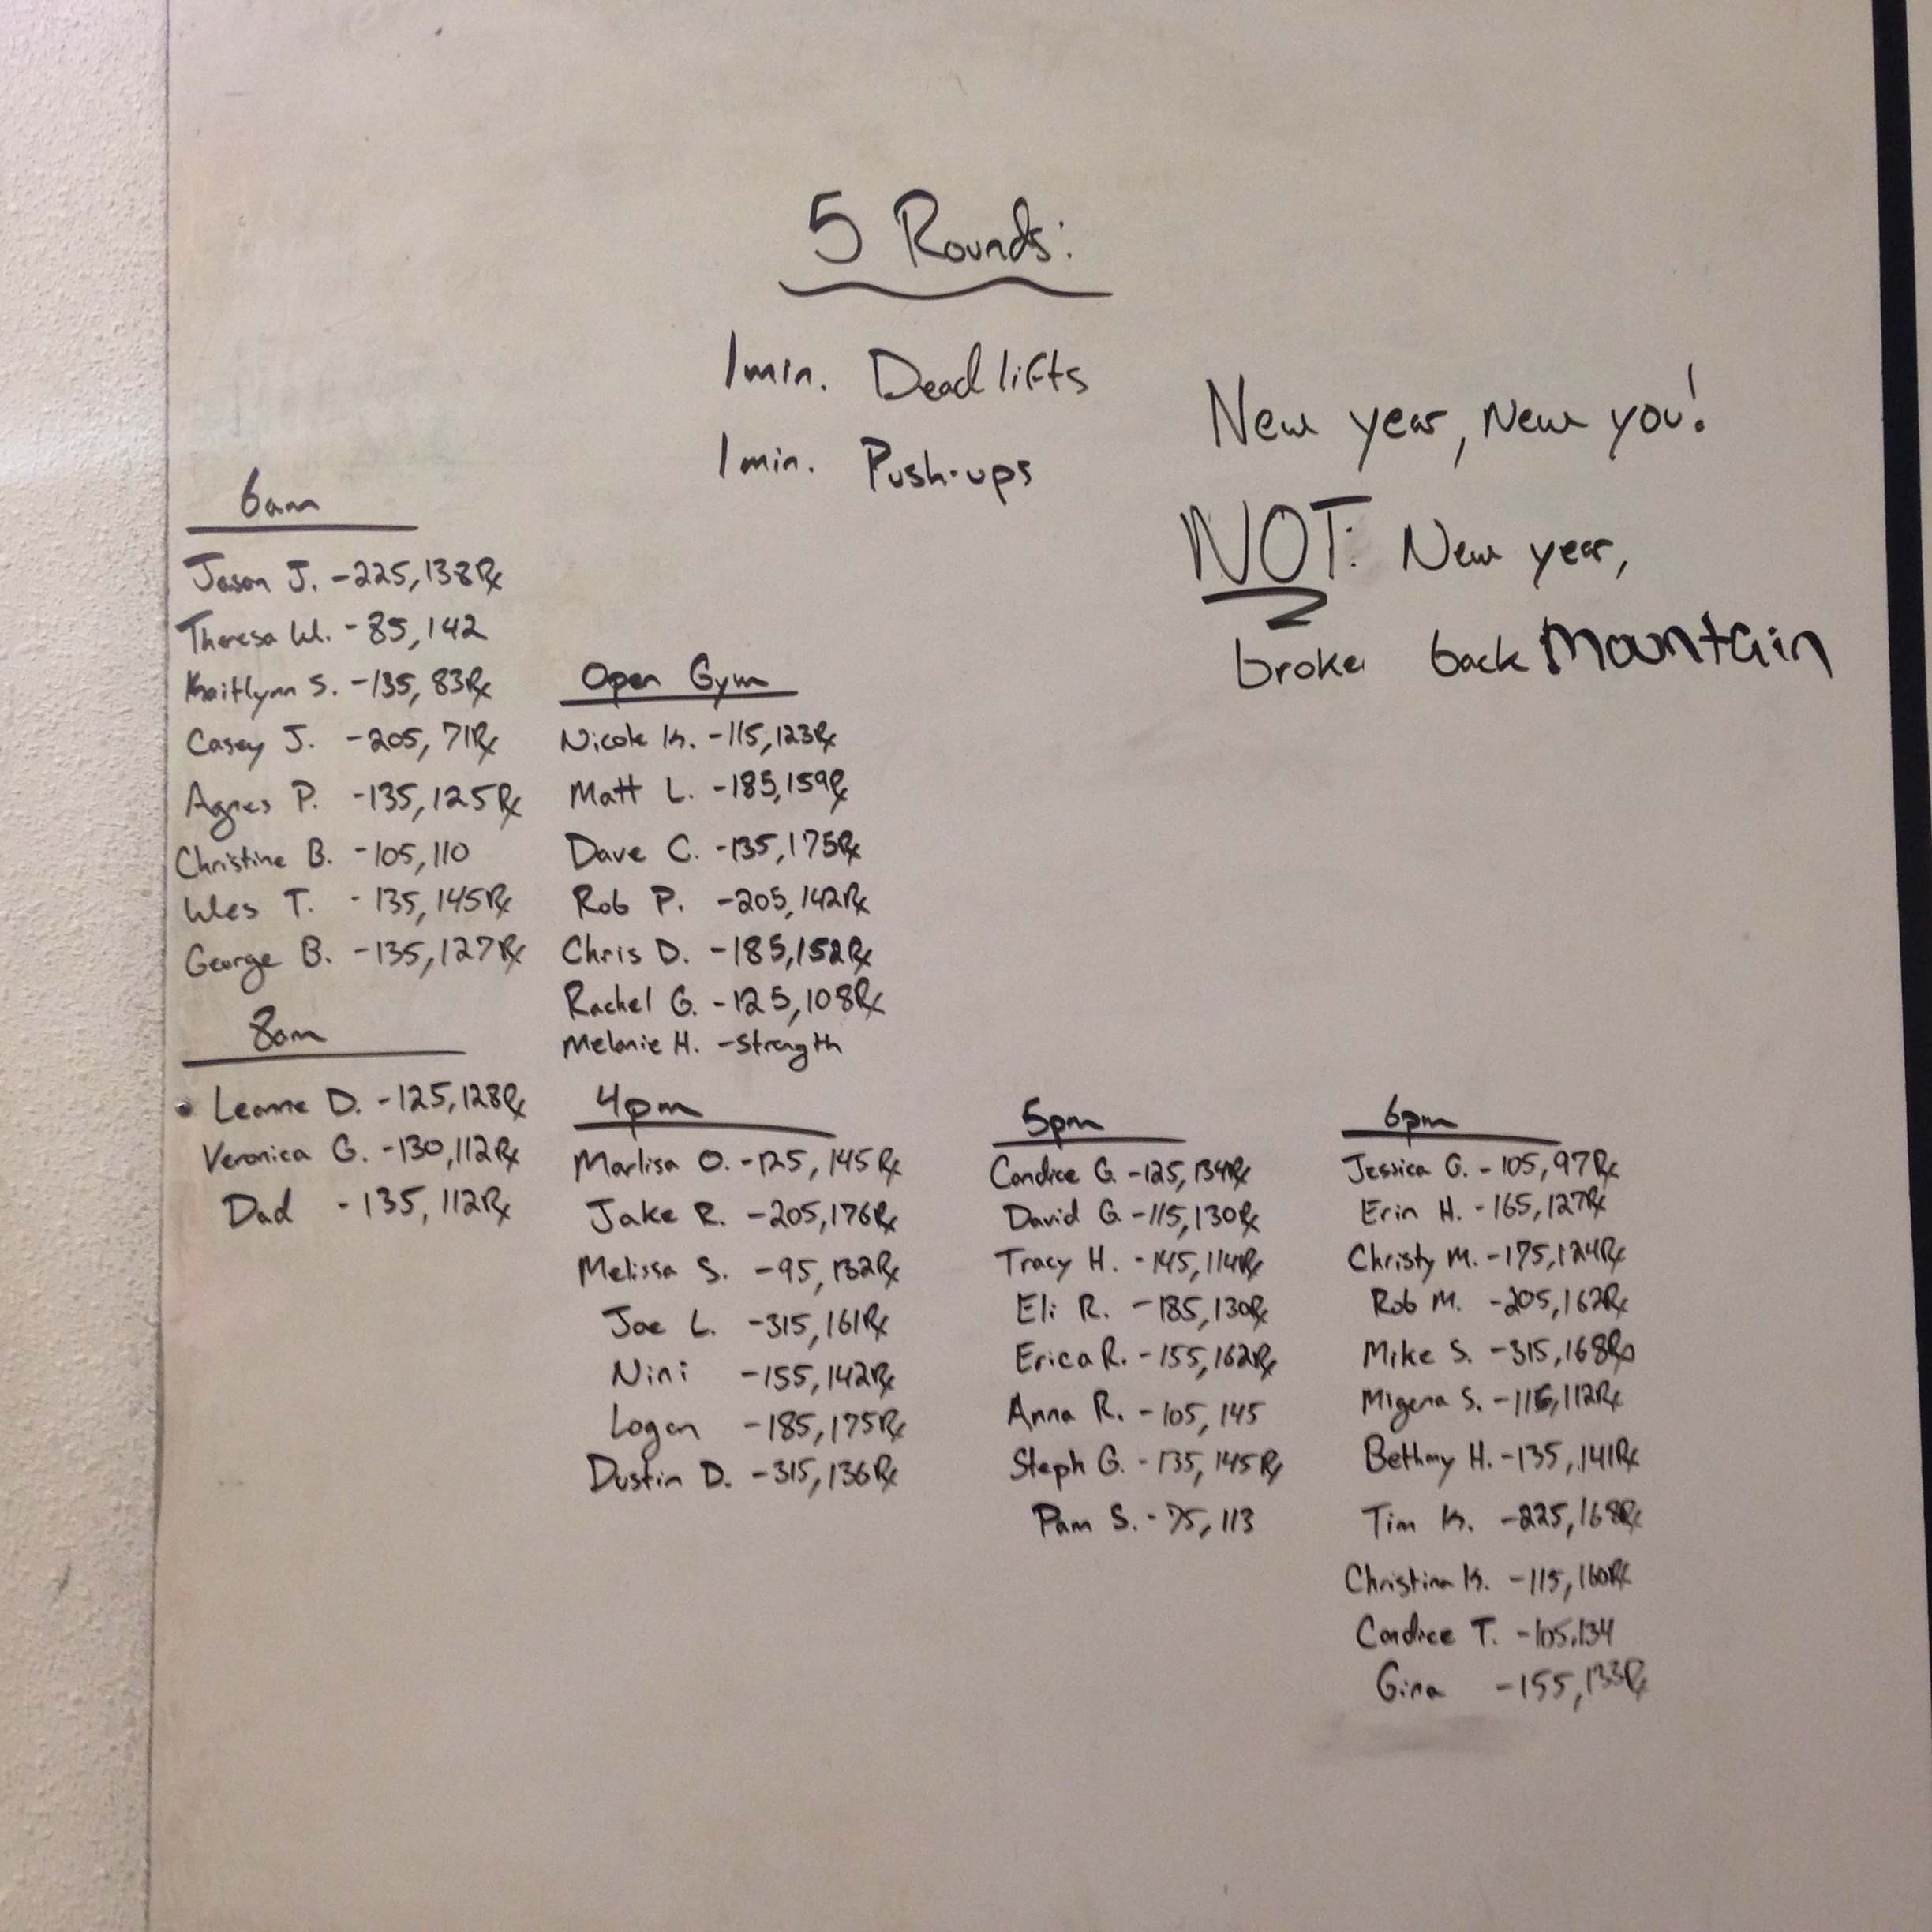 5 Rounds:
1min. Deadlifts
1min. Push-ups
New year, New you!
NOT: New year,
broke back Mountain
6am
Jason J. -225, 138Rx
Theresa W. -85, 142
Kaitlynn S. -135, 83Rx
Casey J. -205, 71Rx
Agnes P. -135, 125Rx
Christine B. -105, 110
Wes T. -135, 145Rx
George B. -135, 127Rx
8am
Leanne D. -125, 128Rx
Veronica G. -130, 112Rx
Dad -135, 112Rx
Open Gym
Nicole K. -115, 123Rx
Matt L. -185, 159Rx
Dave C. -135, 175Rx
Rob P. -205, 142Rx
Chris D. -185, 152Rx
Rachel G. -125, 108Rx
Melanie H. -Strength
4pm
Marlisa O. -125, 145Rx
Jake R. -205, 176Rx
Melissa S. -95, 132Rx
Joe L. -315, 161Rx
Nini -155, 142Rx
Logan -185, 175Rx
Dustin D. -315, 136Rx
5pm
Candice G. -125, 134Rx
David G -115, 130Rx
Tracy H. -145, 114Rx
Eli R. -185, 130Rx
Erica R. -155, 162Rx
Anna R. -105, 145
Steph G. -135, 145Rx
Pam S. -75, 113
6pm
Jessica G. -105, 97Rx
Erin H. -165, 127Rx
Christy M. -175, 124Rx
Rob M. -205, 162Rx
Mike S. -315, 168Rx
Migena S. -115, 112Rx
Bethany H. -135, 141Rx
Tim K. -225, 168Rx
Christina K. -115, 160Rx
Candice T. -105, 134
Gina -155, 133Rx